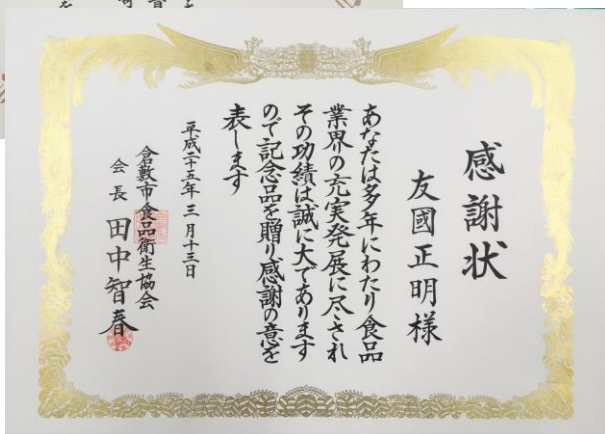 感謝状
友國正明様
あなたは多年にわたり食品
業界の充実発展に尽され
その功績は誠に大であります
ので記念品を贈り感謝の意を
表します
平成二十五年三月十三日
倉敷市食品衛生協会
会長 田中智春